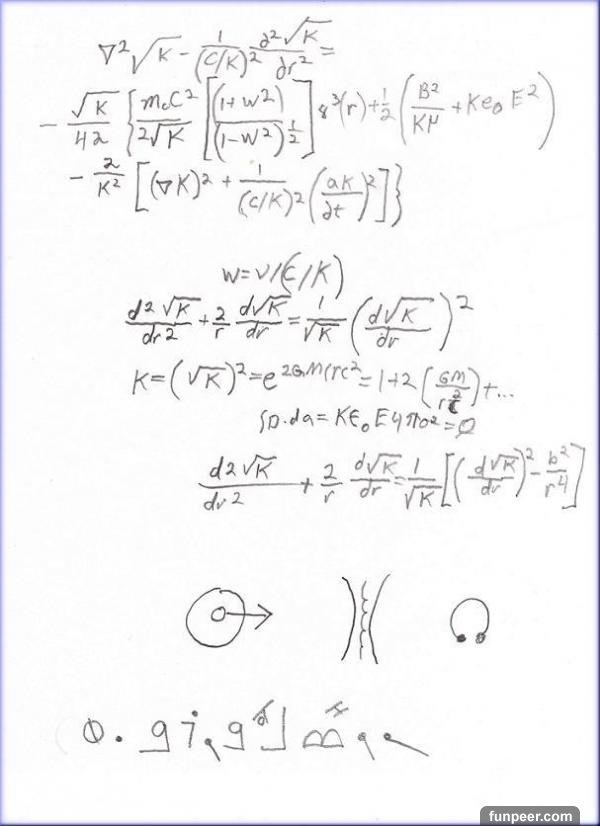 ∇²√K - 1/(C/K)² ∂²√K/∂r² =
- √K/42 { m₀C²/2√K [(1+W²)/(1-W²)^½] 8³(r) + ½ (B²/Kμ + Ke₀E²)
- 2/K² [(∇K)² + 1/(C/K)² (aK/∂t)²] }
W=V/(C/K)
d2√K/dr2 + 2/r d√K/dr = 1/√K (d√K/dr)²
K=(√K)²=e^2GM(rc²=1+2(GM/rc²)+...
SD.da=Kϵ₀E4πo²=Q
d2√K/dr2 + 2/r d√K/dr = 1/√K [(d√K/dr)² - b²/r⁴]
funpeer.com